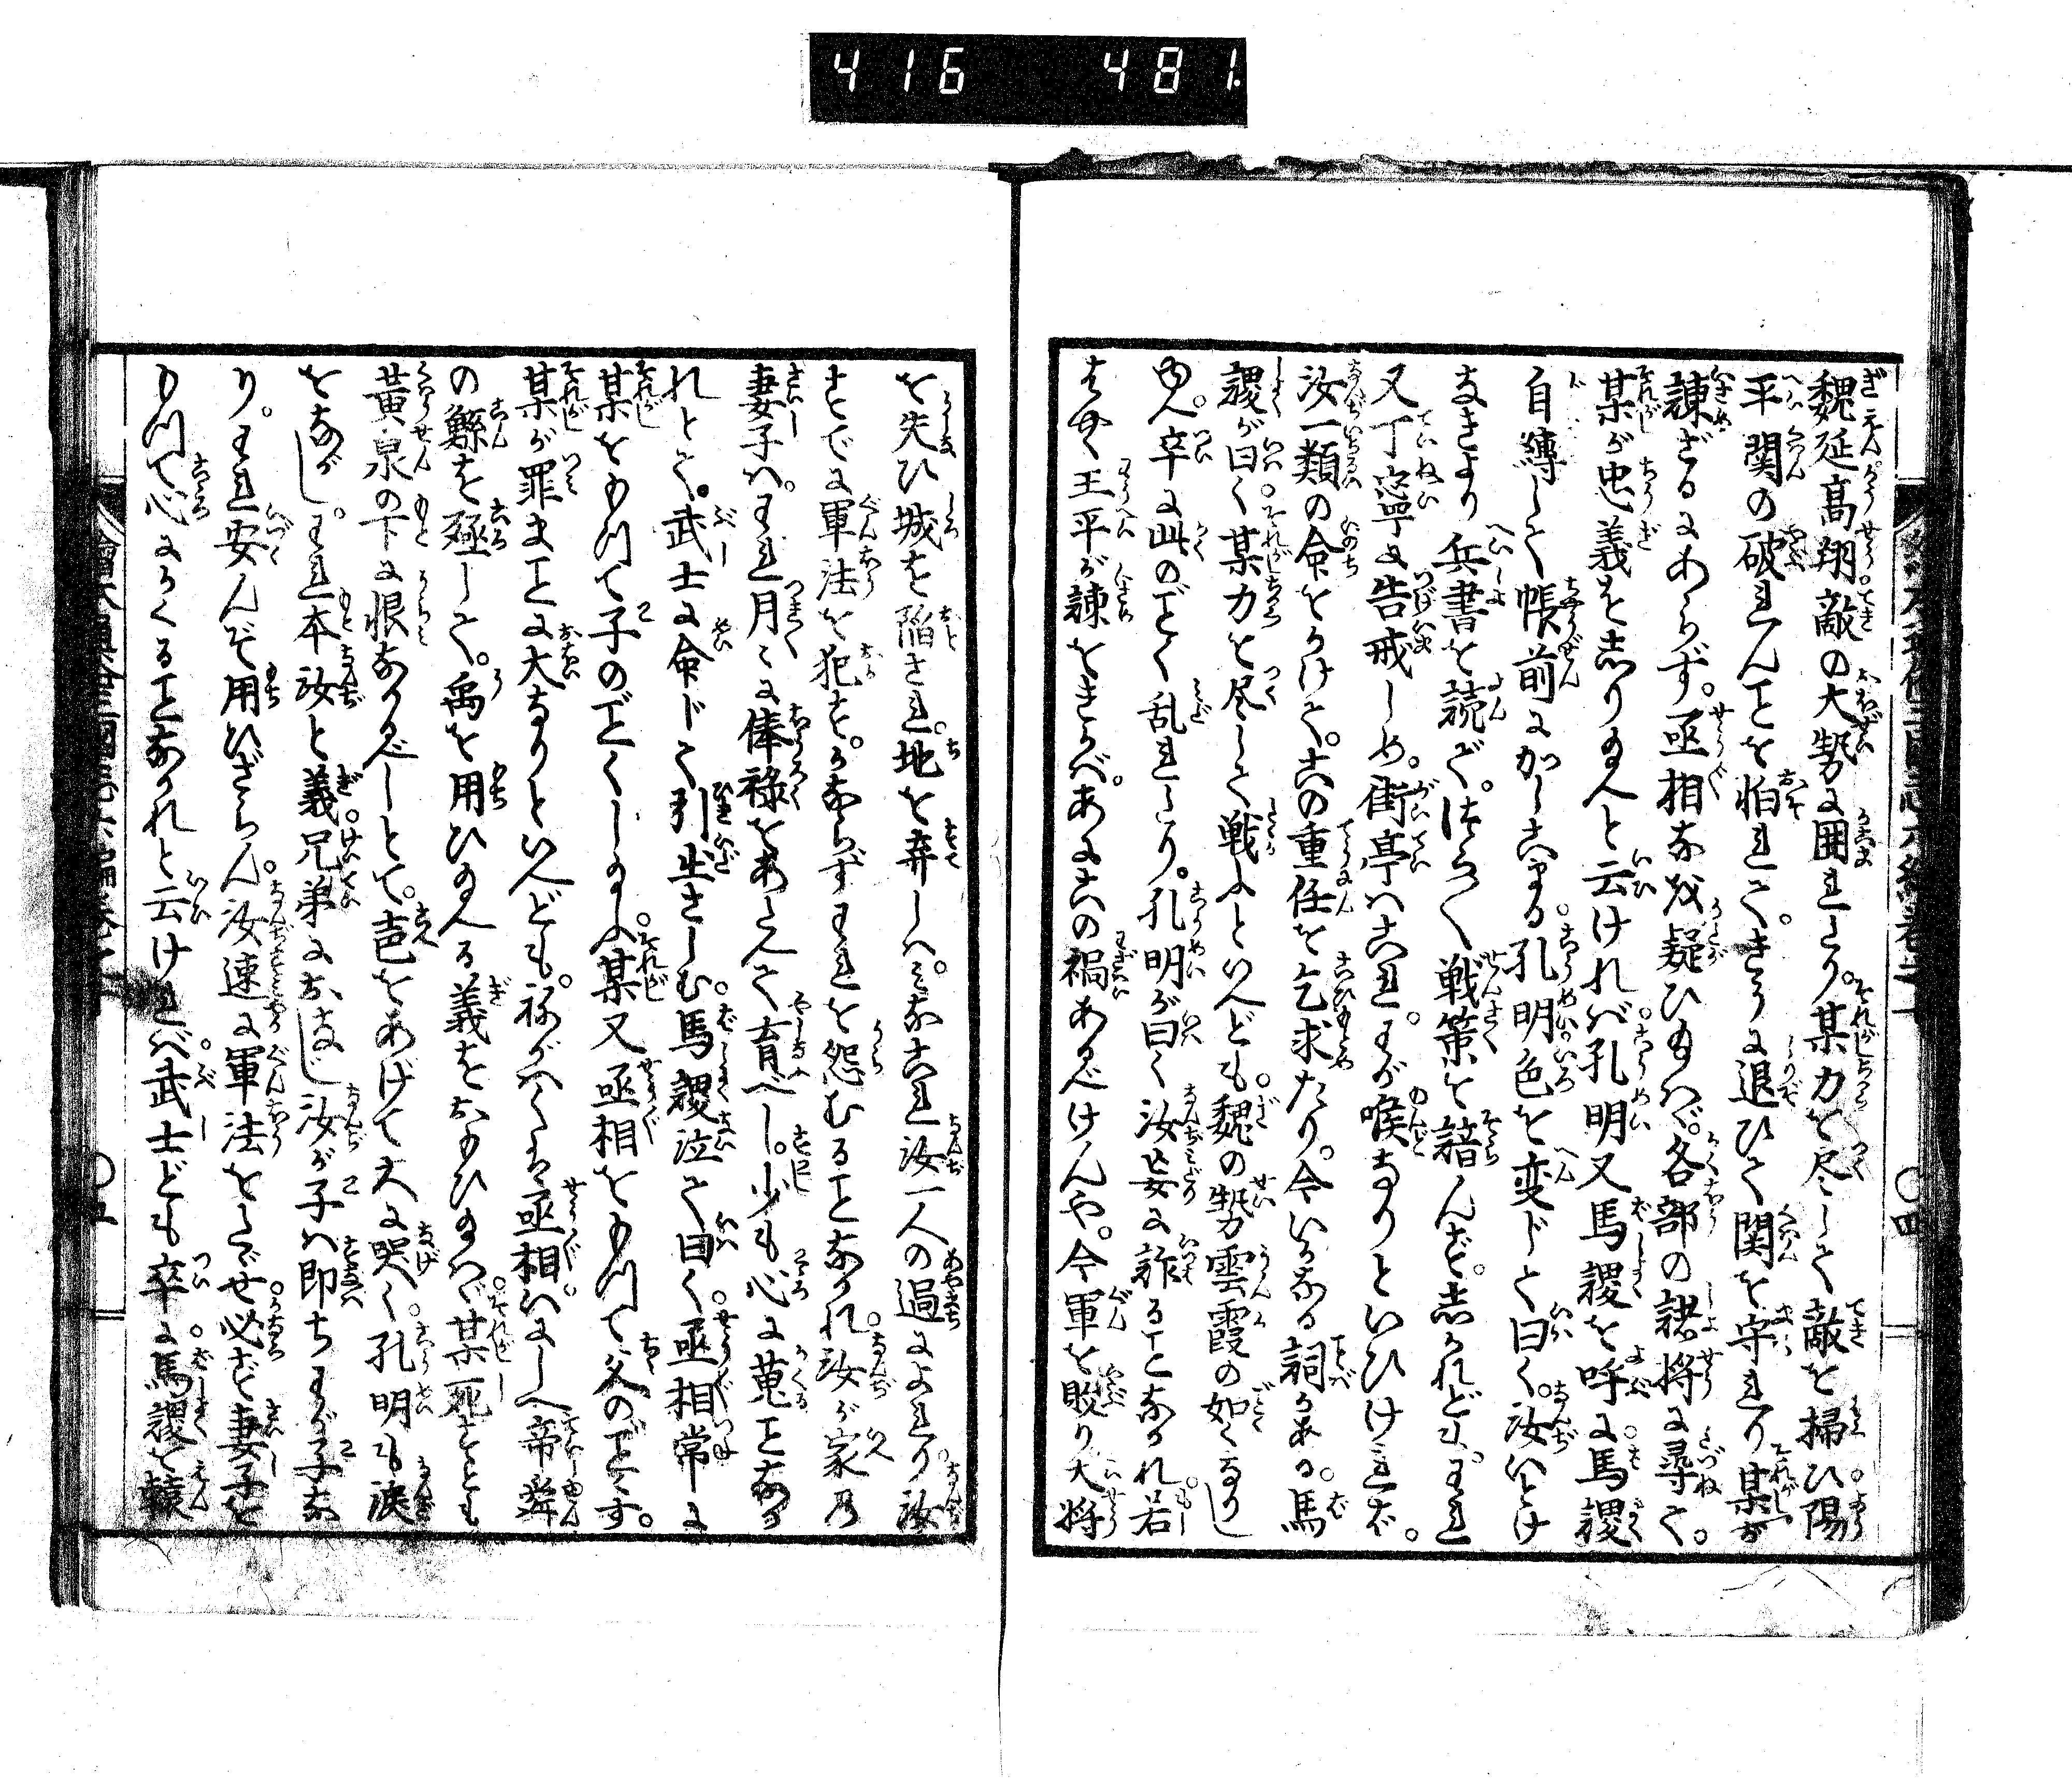 416 481.
魏延高翔敵の大勢に囲れたり。某力を尽して敵を掃ひ陽
平関の破れんことを怕れて。きうに退ひて関を守れり某が
諫ざるにあらず。丞相なを疑ひ給はゞ。各部の諸将に尋て。
某が忠義を志り給へと云けれバ孔明又馬謖を呼に馬謖
自縛して帳前にかしこまる孔明色を変じて曰く。汝いとけ
なきより兵書を読ご。つらつら戦策を諳んぜ。志かれども。われ
又丁寧に告戒しめ。街亭ハこれ。わが喉なりといひけれバ。
汝一類の命をかけて。この重任を乞求たり。今いかなる詞かある。馬
謖が曰く某力を尽して戦ふといへども。魏の勢雲霞の如くなりし
ゆへ。卒に此のごとく乱れたり。孔明が曰く汝妄に詐ることなかれ若
はやく王平が諫をきかバ。あにこの禍あるべけんや。今軍を敗り大将
を失ひ城を陥され。地を弃しハ。みなこれ汝一人の過によれり。汝
すでに軍法を犯す。かならずわれを怨むることなかれ汝が家の
妻子ハ。われ月〻に俸禄をあたへて育べし。少も心に蒐ことなか
れとて。武士に命じて引出さしむ。馬謖泣て曰く。丞相常に
某をもつて子のごとくし給ふ。某又丞相をもつて父のごとす。
某が罪まことに大なりといへども。ねがハくは丞相いにしへ帝舜
の鯀を殛して。禹を用ひ給へる義をおもひ給はゞ某死すとも
黄泉の下に恨なかるべしとて。声をあげて大に哭く孔明も涙
をながし。われ本汝と義兄弟におなじ汝が子ハ即ちわが子な
り。われ安んぞ用ひざらん。汝速に軍法をたゞせ必ず妻子を
もつて心にかくることなかれと云けれバ武士ども卒に馬謖を轅
〇四
〇五